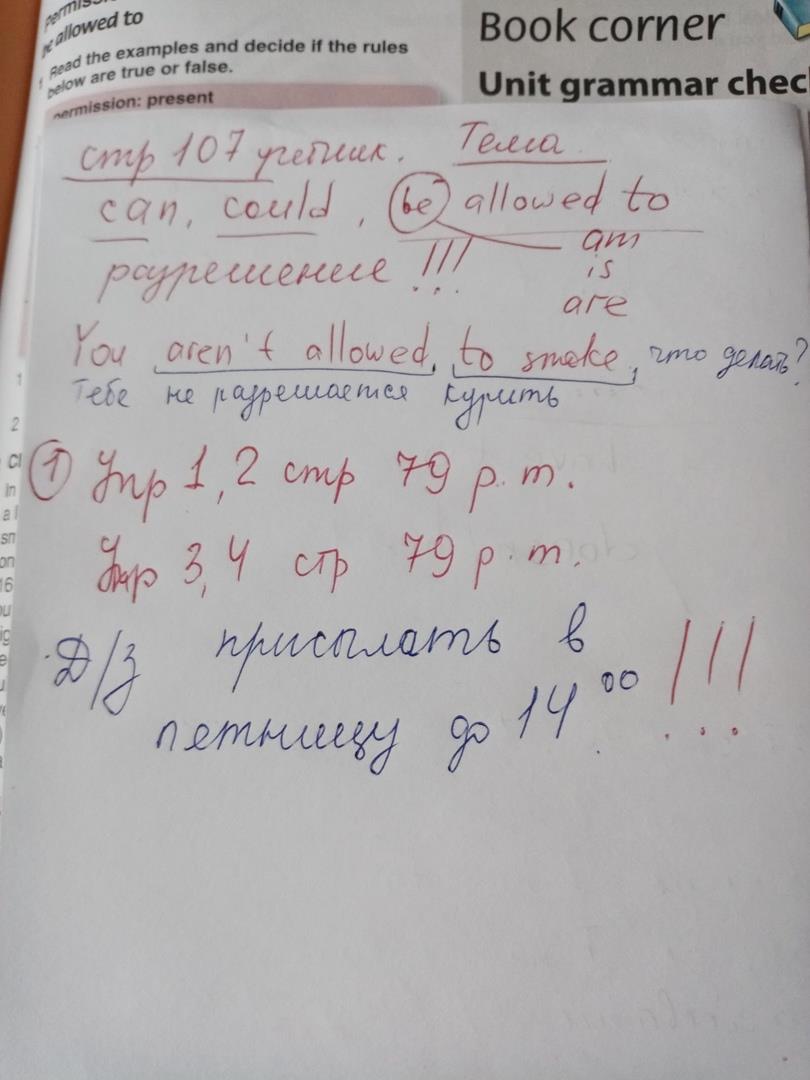 allowed to
Read the examples and decide if the rules
below are true or false.
permission: present
Book corner
Unit grammar chec
стр 107 учебник. Тема
can, could, be allowed to
am
is
are
разрешение !!!
You aren't allowed, to smoke, что делать?
Тебе не разрешается курить
1 Упр 1, 2 стр 79 р. т.
Упр 3, 4 стр 79 р. т.
Д/З присылать в
пятницу до 14 00 !!!
1
2
Cl
in
a l
sn
on
16